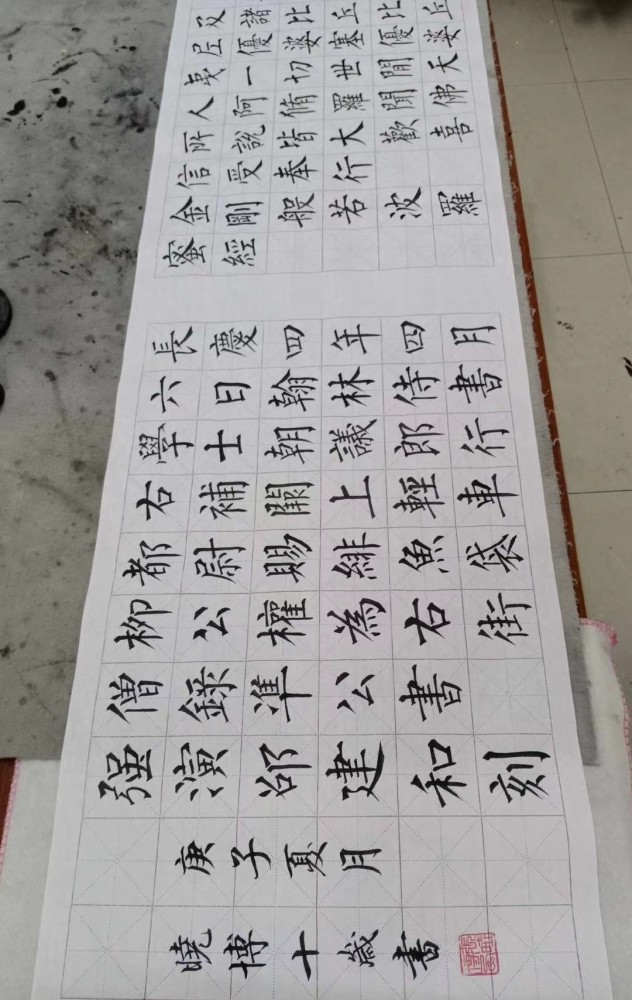 及諸比丘比丘
尼優婆塞優婆
夷一切世間天
人阿脩羅聞佛
所說皆大歡喜
信受奉行
金剛般若波羅
蜜經
長慶四年四月
六日翰林侍書
學士朝議郎行
右補闕上輕車
都尉賜緋魚袋
柳公權為右街
僧錄準公書
强演邵建和刻
庚子夏月
曉博十歲書